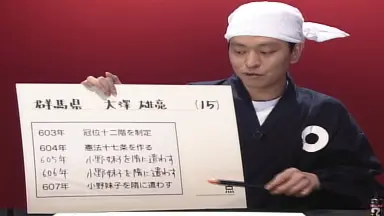 群馬県 大澤 雄亮 (15)
603年 冠位十二階を制定
604年 憲法十七条を作る
605年 小野妹子を隋に遣わす
606年 小野妹子を隋に遣わす
607年 小野妹子を隋に遣わす
点